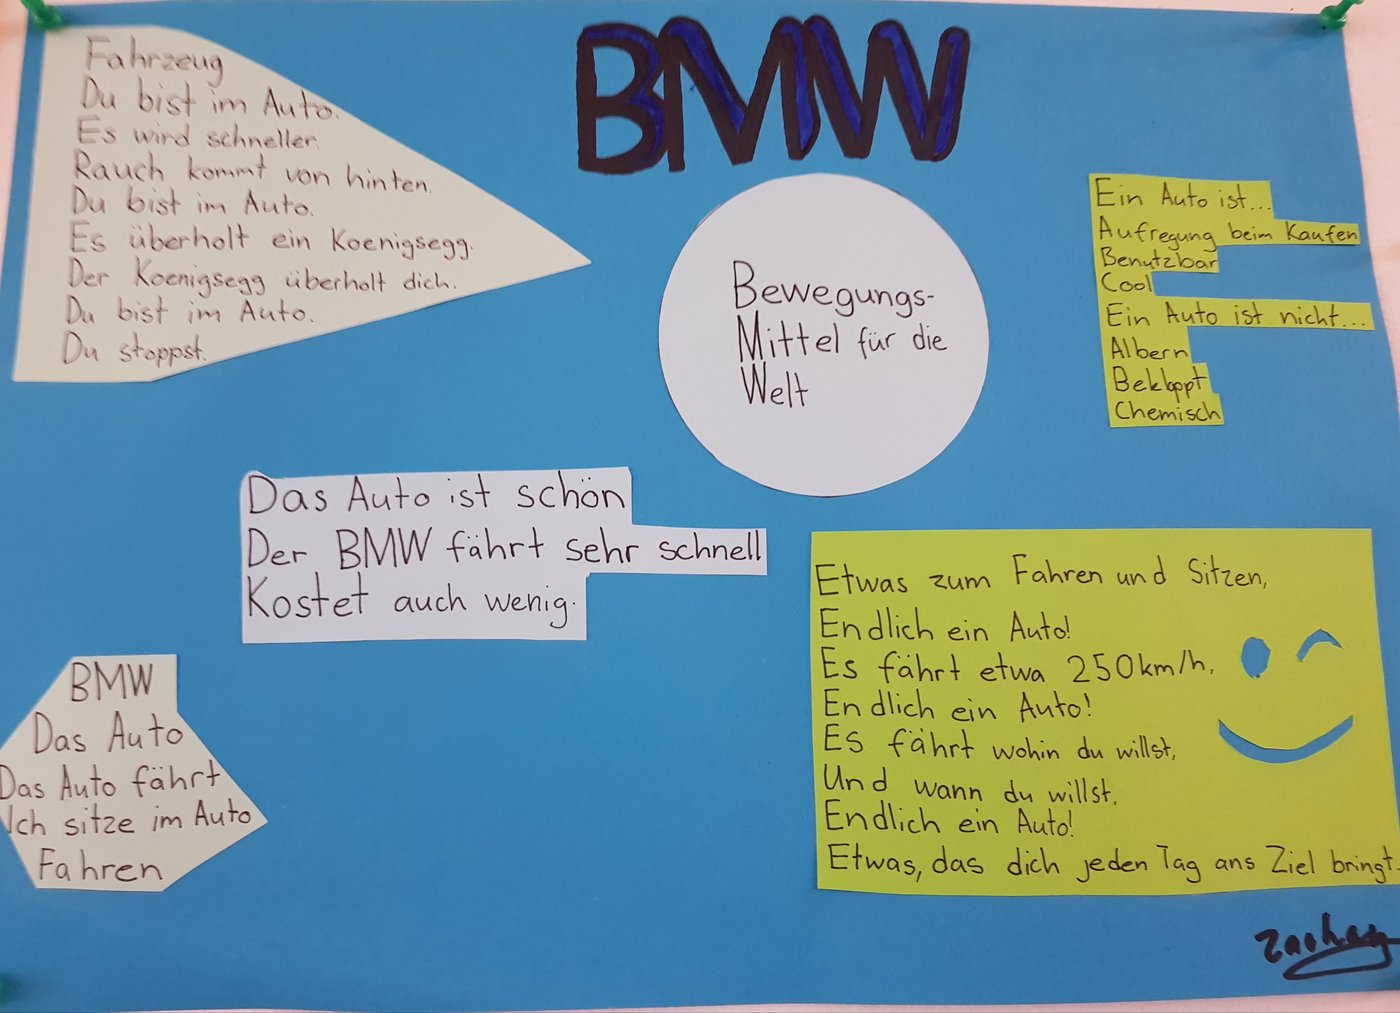 BMW
Fahrzeug
Du bist im Auto.
Es wird schneller.
Rauch kommt von hinten.
Du bist im Auto.
Es überholt ein Koenigsegg.
Der Koenigsegg überholt dich.
Du bist im Auto.
Du stoppst.
Bewegungs-
Mittel für die
Welt
Ein Auto ist...
Aufregung beim Kaufen
Benutzbar
Cool
Ein Auto ist nicht...
Albern
Bekloppt
Chemisch
Das Auto ist schön
Der BMW fährt sehr schnell
Kostet auch wenig.
BMW
Das Auto
Das Auto fährt
Ich sitze im Auto
Fahren
Etwas zum Fahren und Sitzen,
Endlich ein Auto!
Es fährt etwa 250km/h,
Endlich ein Auto!
Es fährt wohin du willst,
Und wann du willst,
Endlich ein Auto!
Etwas, das dich jeden Tag ans Ziel bringt.